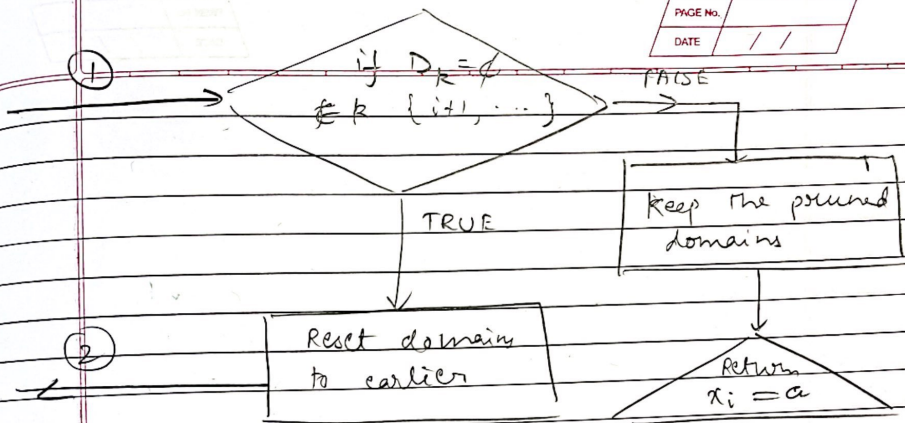 PAGE No.
DATE / /
1
if Dₖ = ϕ
k {i+1, ...}
FALSE
TRUE
keep the pruned
domains
2
Reset domains
to earlier
Return
xᵢ = a